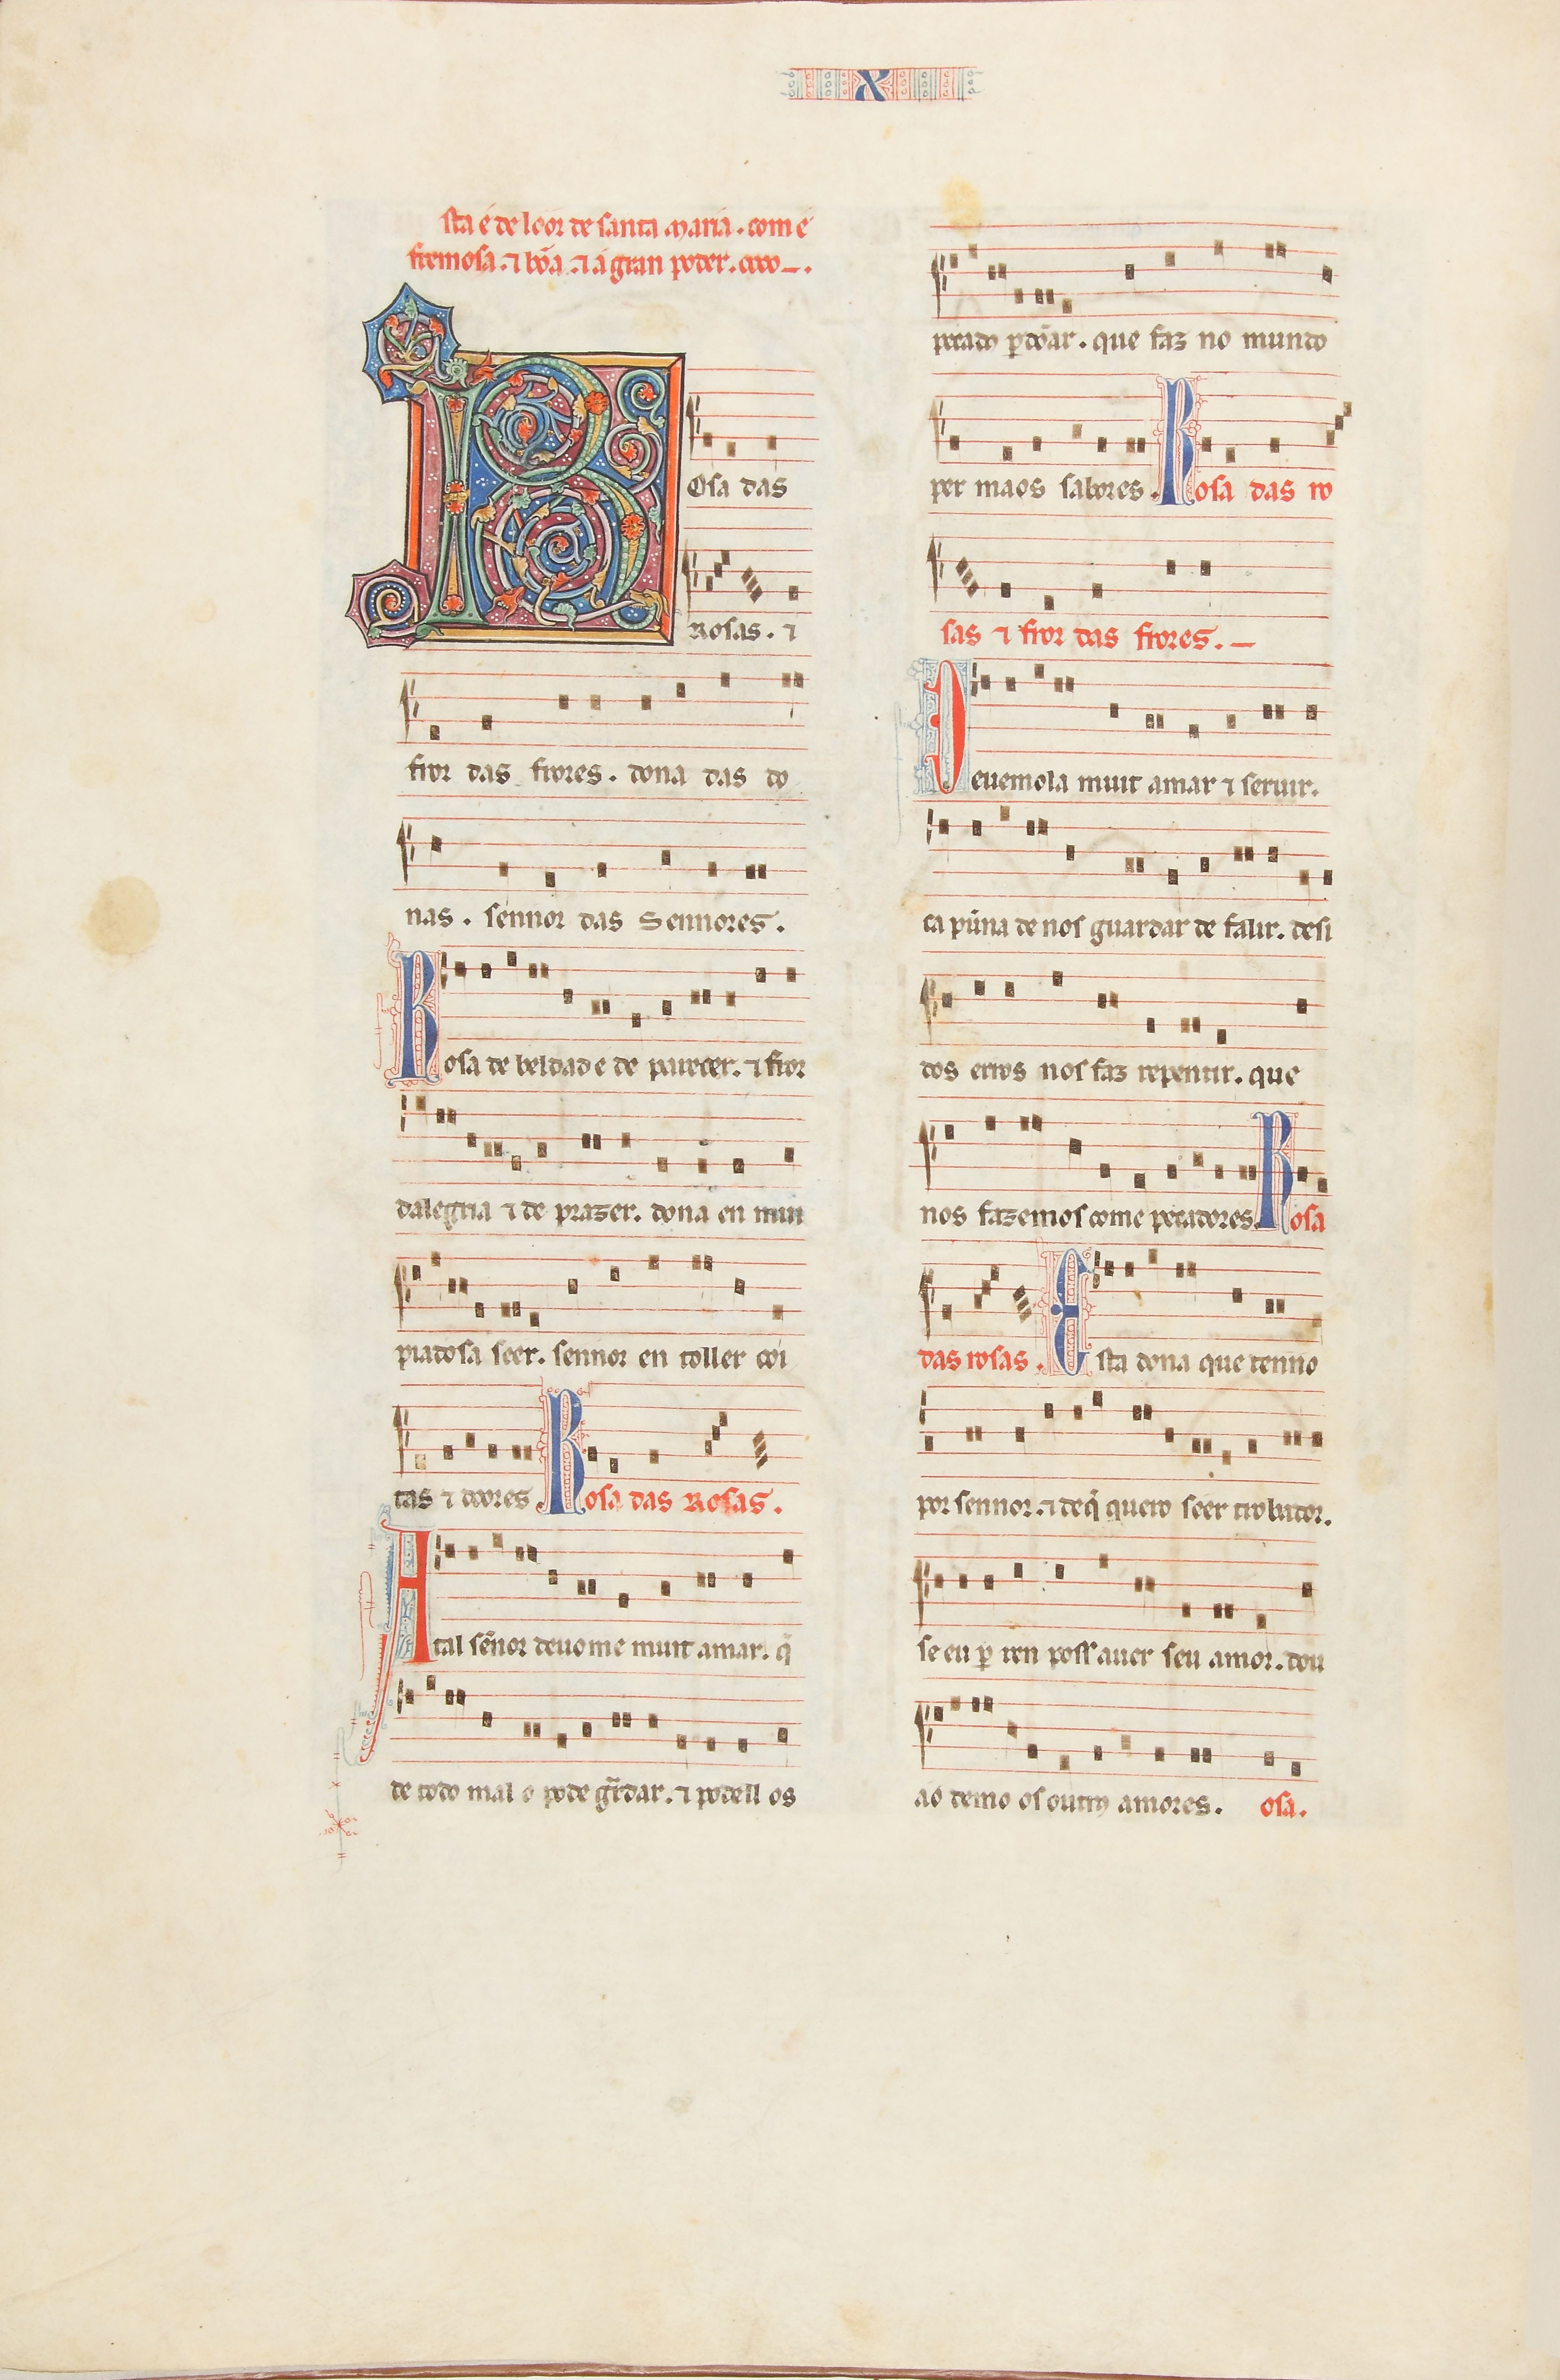 X
sta é de loor de santa maria. com é
fremosa. ⁊ bõa. ⁊ á gran poder.
ROsa das
Rosas. ⁊
fror das frores. dona das do
nas. sennor das Sennores.
Rosa de beldad e de parecer. ⁊ fror
dalegria ⁊ de prazer. dona en mui
piadosa seer. sennor en toller coi
tas ⁊ doores. Rosa das Rosas.
Atal sẽnor deuo me muit amar. q̃
de todo mal o pode gr̃dar. ⁊ podell os
peccados ꝑdõar. que faz no mundo
per maos sabores. Rosa das ro
sas ⁊ fror das frores.
Deuemola muit amar ⁊ seruir.
ca pũna de nos guardar de falir. desi
dos erros nos faz repentir. que
nos fazemos come pecadores. Rosa
das rosas. Esta dona que tenno
por sennor. ⁊ de q̃ quero seer trobador.
se eu ꝑ ren poss auer seu amor. dou
ao demo os outros amores. osa.